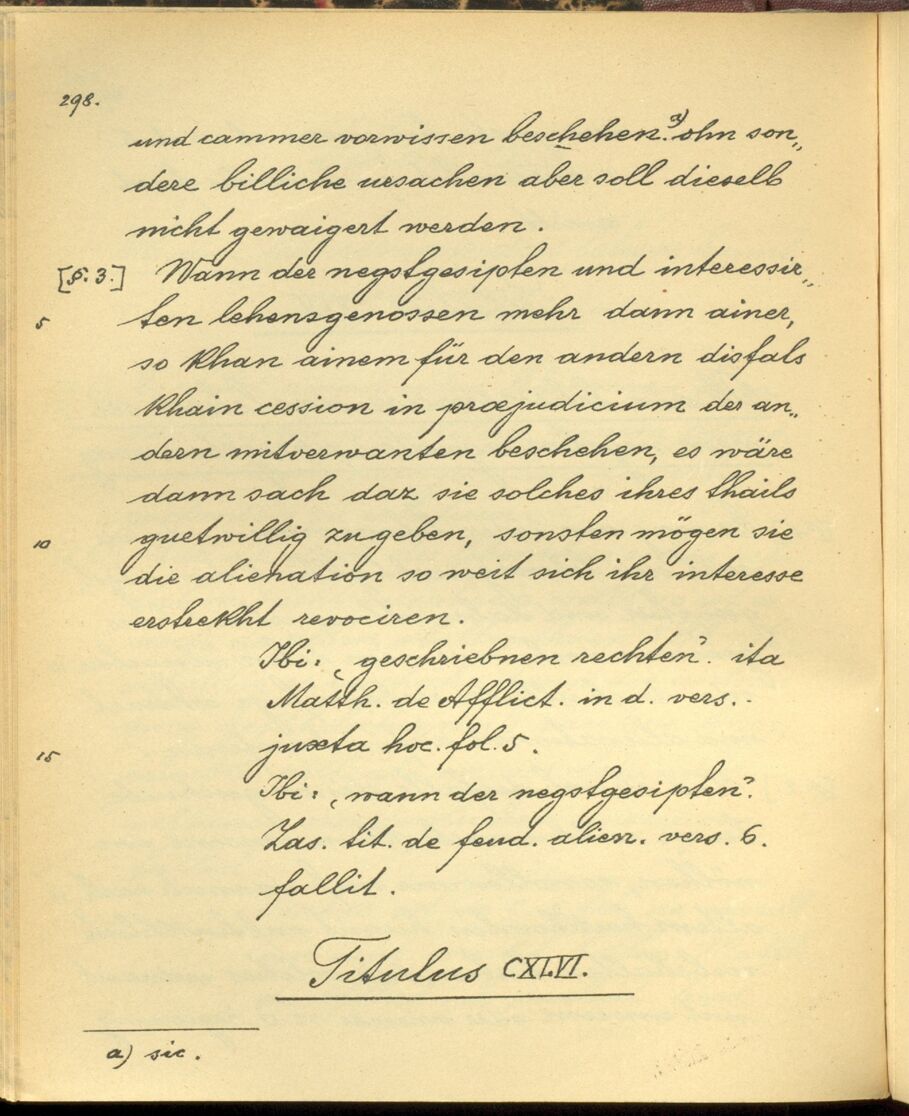 298.
und cammer vorwissen beschehen.ᵃ⁾ ohn son„
dere billiche ursachen aber soll dieselb
nicht gewaigert werden.
[§. 3.] Wann der negstgesipten und interessir„
5 ten lehensgenossen mehr dann ainer,
so khan ainem für den andern disfals
khain cession in præjudicium der an„
dern mitverwanten beschehen, es wäre
dann sach daz sie solches ihres thails
10 guetwillig zugeben, sonsten mögen sie
die alienation so weit sich ihr interesse
erstrekht revociren.
Ibi: „geschriebnen rechten". ita
Matth. de Afflict. in d. vers.
15 juxta hoc. fol. 5.
Ibi: „wann der negstgesipten".
Zas. tit. de feud. alien. vers. 6.
fallit.
Titulus CXLVI.
a) sic.